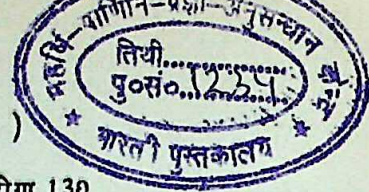 महर्षि-पाणिनि-प्रज्ञा-अनुसन्धान
तिथी..............
पु०सं०..1234
* भारती पुस्तकालय *
)
130